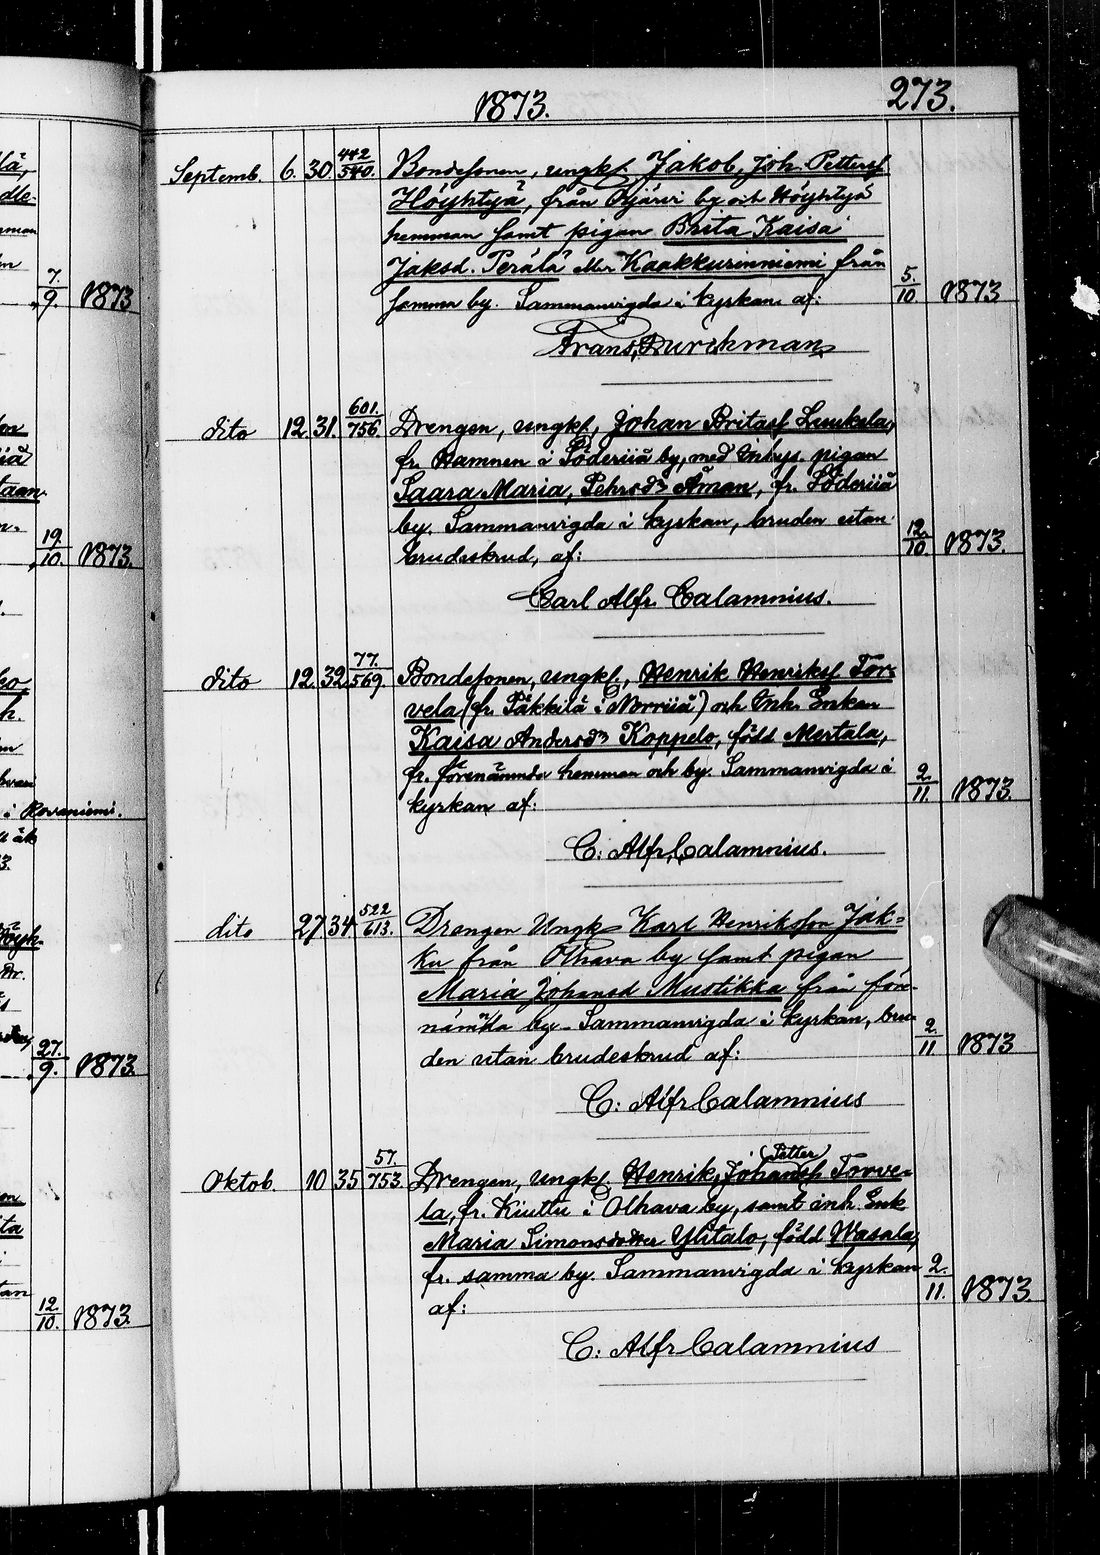 1873.
273.
Septemb. 6. 30 442/540. Bondesonen, ungkl. Jakob, Joh. Petterss
Höyhtyä, från Ojärvi by och Höyhtyä
hemman samt pigan Brita Kaisa
Jaksd. Perälä eller Kaakkurinniemi från
samma by. Sammanvigda i kyrkan af: 5./10 1873
Frans, Durchman
dito 12. 31. 601./756. Drengen, ungkl, Johan Britass Luukela,
fr. Hamnen i Söderijä by, med Inhys. pigan
Saara Maria, Pehrsdr Åman, fr. Söderijä
by. Sammanvigda i kyrkan, bruden utan
brudeskrud, af: 12/10 1873.
Carl Alfr. Calamnius.
dito 12. 32. 77./569. Bondesonen, ungkl, Henrik Henrikss Tor-
vela (fr. Päkkilä i Norrijä) och Inh. Enkan
Kaisa Andersdr Koppelo, född Mertala,
fr. förenämnda hemman och by. Sammanvigda i
kyrkan af: 2./11. 1873.
C: Alfr, Calamnius.
dito 27 34 522/613. Drengen Ungk Karl Henriksson Jak=
ku från Olhava by samt pigan
Maria Johansd Mustikka från för-
nämnda by. Sammanvigda i kyrkan, bru-
den utan brudeskrud af: 2./11 1873
C: Alfr Calamnius
(Petter)
Oktob. 10 35 57./753. Drengen, ungkl. Henrik, Johanss Torve-
la, fr. Kiuttu i Olhava by, samt inh. Enk
Maria Simonsdotter Ylitalo, född Wasala,
fr. samma by. Sammanvigda i kyrkan
af: 2./11. 1873.
C: Alfr Calamnius
7./9. 1873
19./10. 1873.
i Rovaniemi.
27./9. 1873.
12./10. 1873.